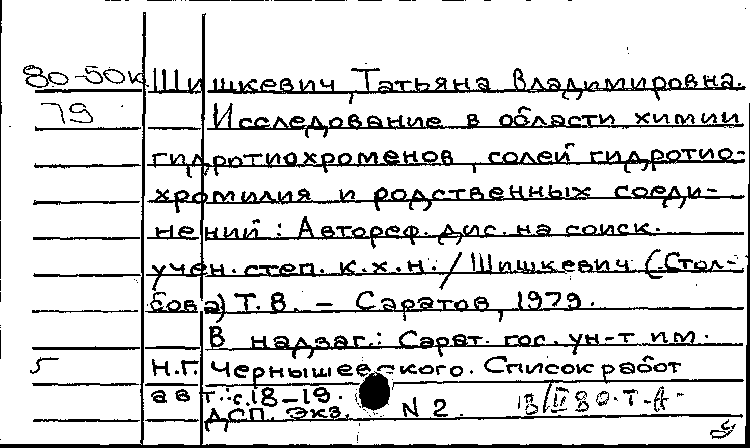 80-50к Шишкевич, Татьяна Владимировна.
79 Исследование в области химии
гидротиохроменов, солей гидротио-
хромилия и родственных соеди-
нений : Автореф. дис. на соиск.
учен. степ. к.х.н. / Шишкевич (Стол-
бова) Т.В. – Саратов, 1979.
В надзаг.: Сарат. гос. ун-т им.
5 Н.Г. Чернышевского. Список работ
авт.: с.18-19.
ДСП. Экз. N 2. 18/II 80. Т-А-